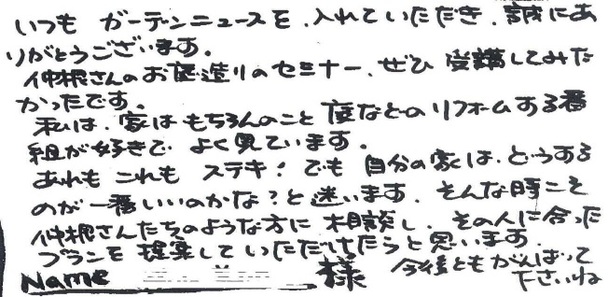 いつも ガーデンニュースを、入れていただき、誠にあ
りがとうございます。
仲根さんのお庭造りのセミナー、ぜひ 受講してみた
かったです。
私は、家はもちろんのこと 庭などのリフォームする番
組が好きで よく見ています。
あれも これも ステキ! でも 自分の家は、どうする
のが一番いいのかな?と迷います。そんな時こそ
仲根さんたちのような方に 相談し、その人に合った
プランを 提案していただけたらと思います。
Name 様 今後ともがんばって
下さいね